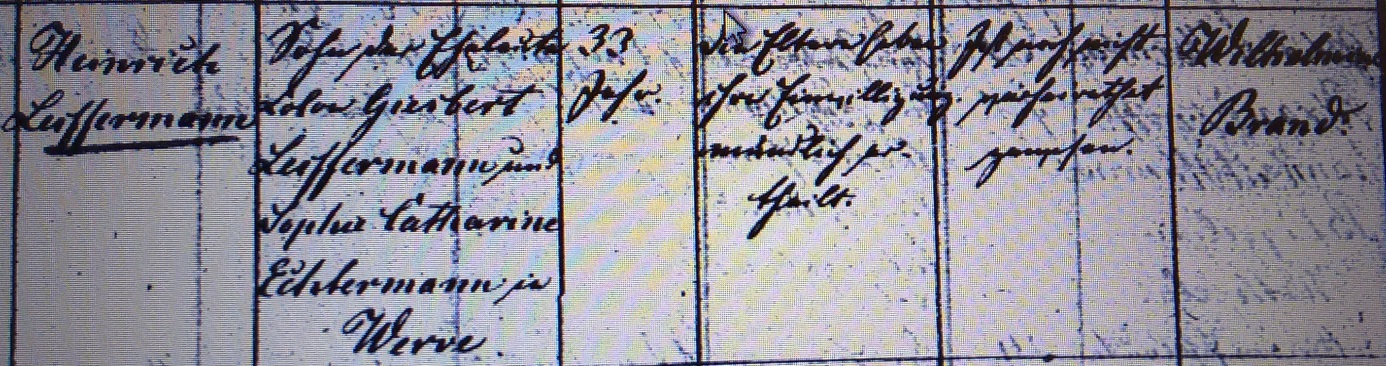 Heinrich
Leiffermann
Sohn der Eheleute
Colon Gisbert
Leiffermann und
Sophie Catharine
Echtermann in
Werve
33
Jahr.
die Eltern haben
ihre Einwilligung
mündlich er-
theilt.
Ist noch nicht
verheirathet
gewesen.
Wilhelmine
Brand.